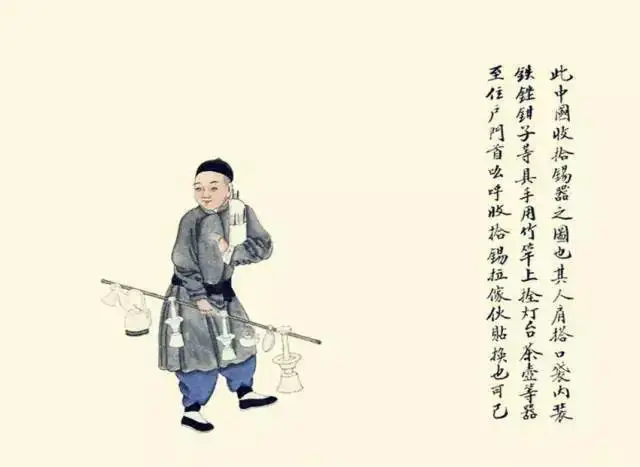 此中國收拾錫器之圖也其人肩搭口袋內裝
鉄銼鉗子等具手用竹竿上拴灯台茶壺等器
至住户門首吆呼收拾錫拉傢伙貼換也可已